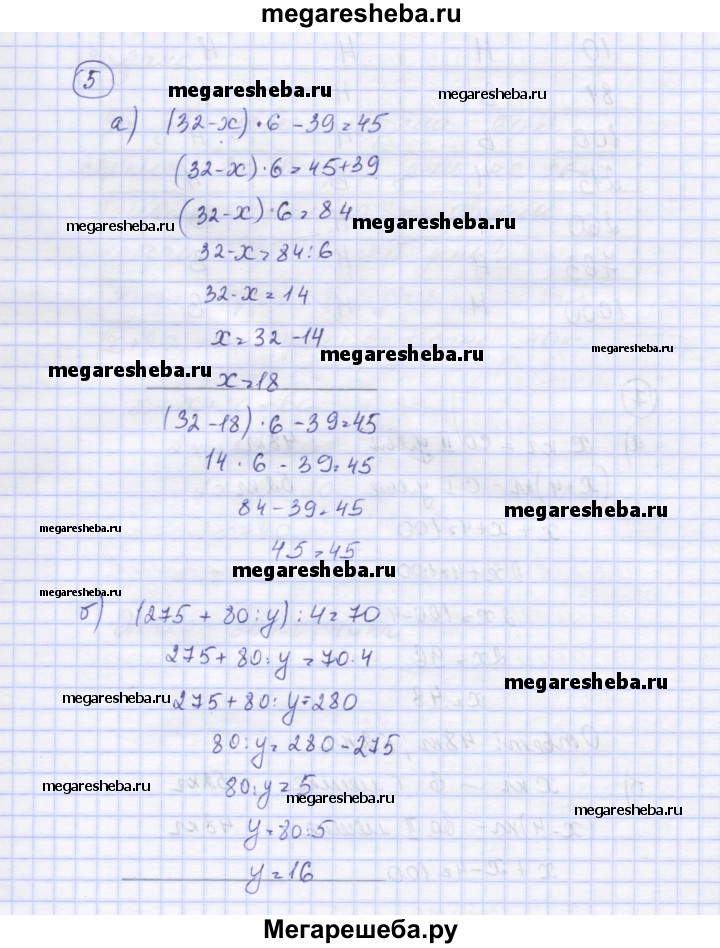 megaresheba.ru
5
megaresheba.ru
megaresheba.ru
а) (32-x)·6-39=45
(32-x)·6=45+39
(32-x)·6=84
megaresheba.ru
megaresheba.ru
32-x=84:6
32-x=14
x=32-14
megaresheba.ru
megaresheba.ru
megaresheba.ru
x=18
(32-18)·6-39=45
14·6-39=45
84-39=45
megaresheba.ru
megaresheba.ru
45=45
megaresheba.ru
megaresheba.ru
б) (275+80:y):4=70
275+80:y=70·4
megaresheba.ru
megaresheba.ru
275+80:y=280
80:y=280-275
megaresheba.ru
80:y=5
megaresheba.ru
megaresheba.ru
y=80:5
y=16
Мегарешеба.ру